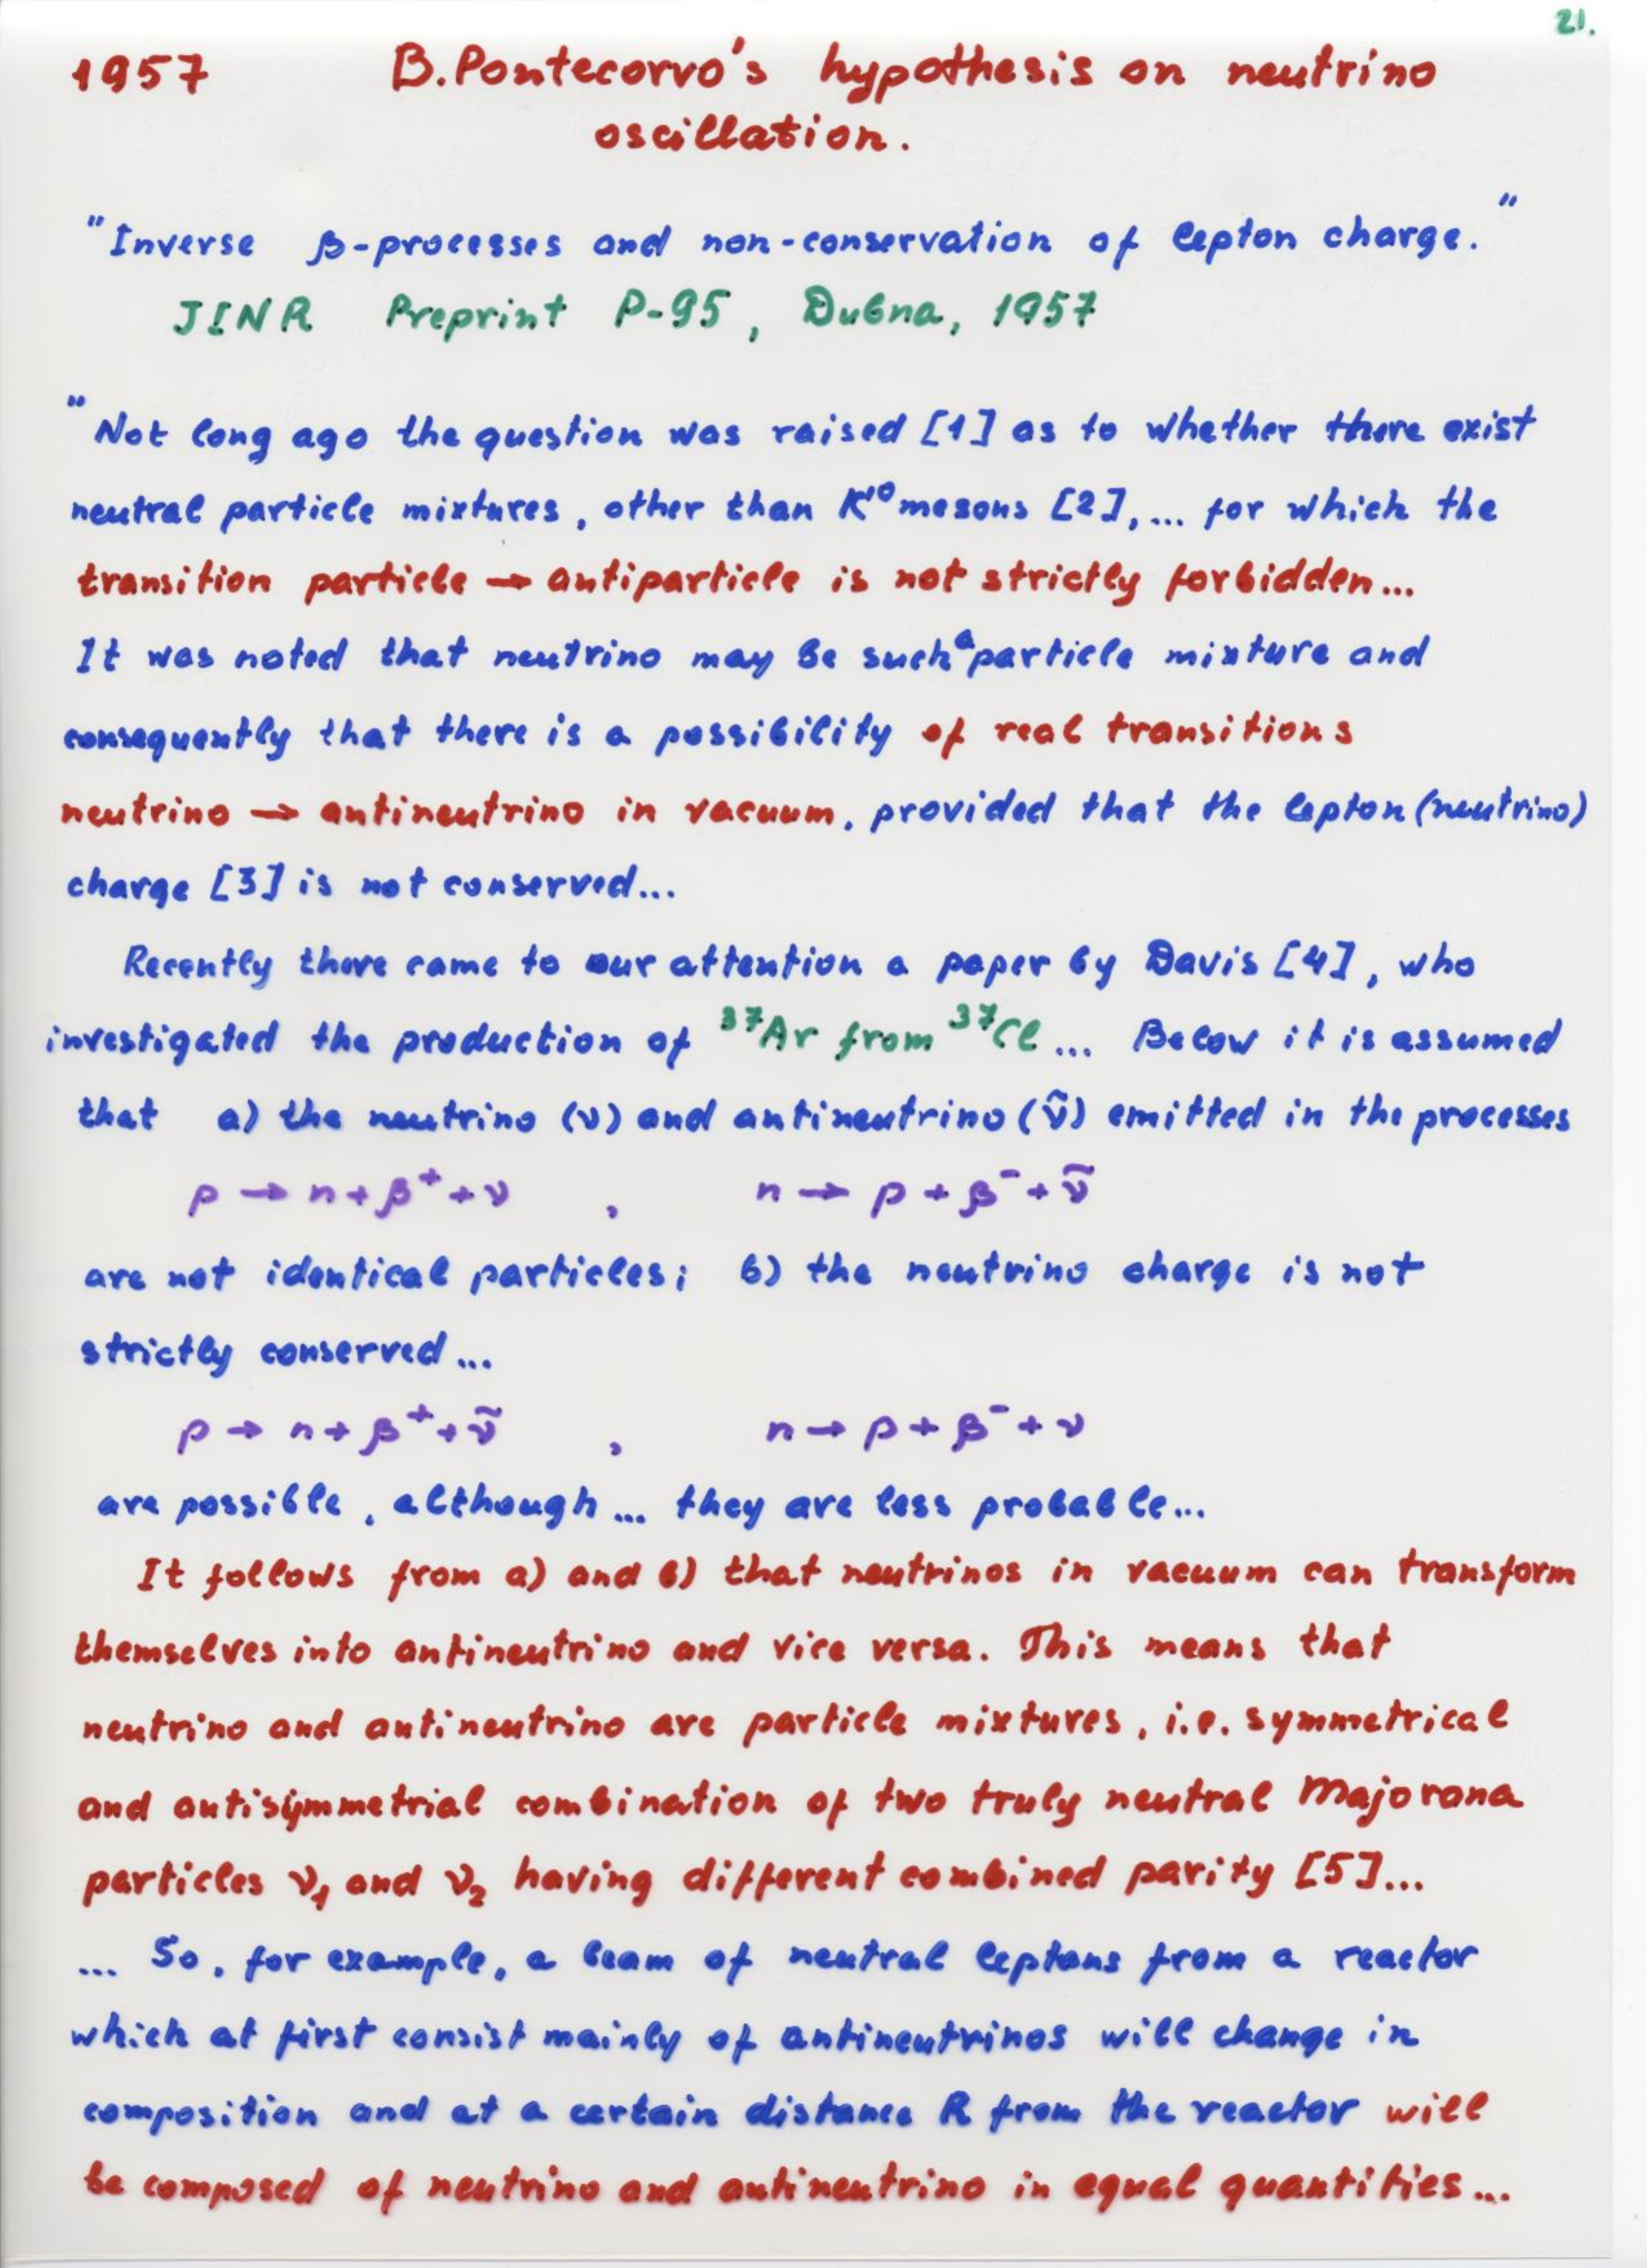 21.
1957 B. Pontecorvo's hypothesis on neutrino
oscillation.
"Inverse β-processes and non-conservation of lepton charge."
JINR Preprint P-95, Dubna, 1957
"Not long ago the question was raised [1] as to whether there exist
neutral particle mixtures, other than K'⁰ mesons [2],... for which the
transition particle → antiparticle is not strictly forbidden...
It was noted that neutrino may be such a particle mixture and
consequently that there is a possibility of real transitions
neutrino → antineutrino in vacuum, provided that the lepton (neutrino)
charge [3] is not conserved...
Recently there came to our attention a paper by Davis [4], who
investigated the production of ³⁷Ar from ³⁷Cl... Below it is assumed
that a) the neutrino (ν) and antineutrino (ν̃) emitted in the processes
p → n + β⁺ + ν , n → p + β⁻ + ν̃
are not identical particles; b) the neutrino charge is not
strictly conserved...
p → n + β⁺ + ν̃ , n → p + β⁻ + ν
are possible, although... they are less probable...
It follows from a) and b) that neutrinos in vacuum can transform
themselves into antineutrino and vice versa. This means that
neutrino and antineutrino are particle mixtures, i.e. symmetrical
and antisymmetrial combination of two truly neutral Majorana
particles ν₁ and ν₂ having different combined parity [5]...
... So, for example, a beam of neutral leptons from a reactor
which at first consist mainly of antineutrinos will change in
composition and at a certain distance R from the reactor will
be composed of neutrino and antineutrino in equal quantities...